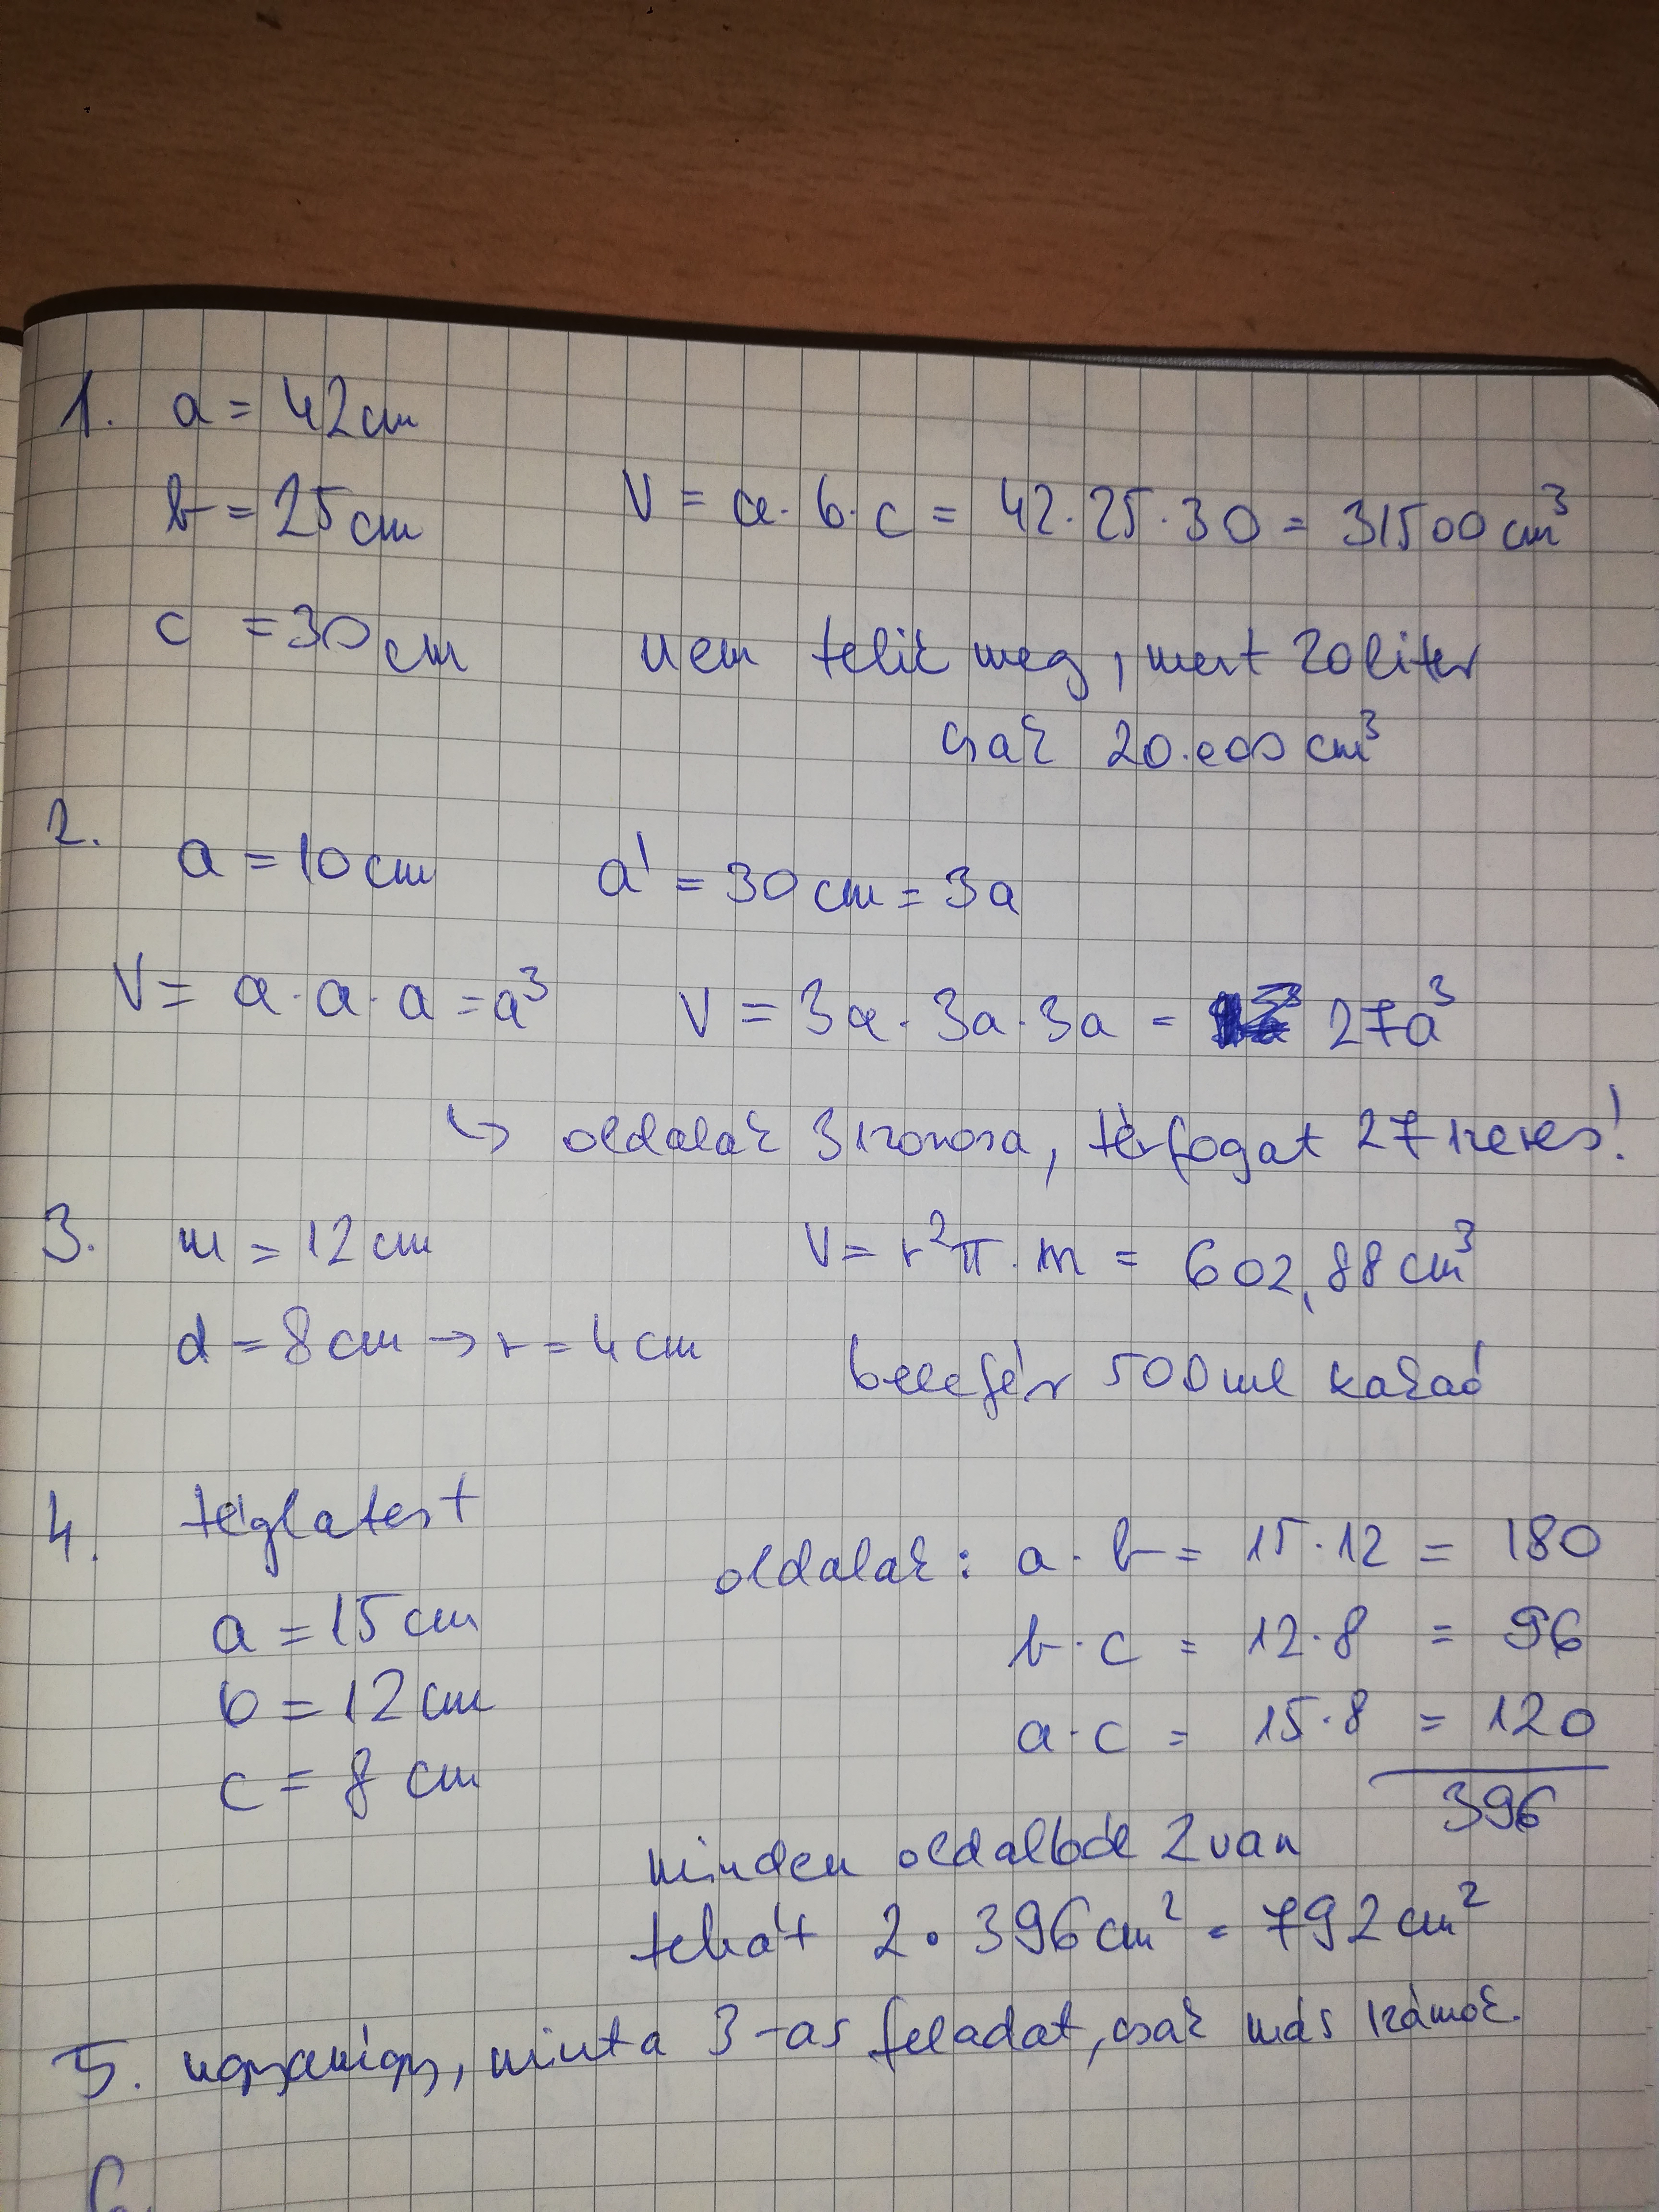 1. a = 42 cm
b = 25 cm
V = a · b · c = 42 · 25 · 30 = 31500 cm³
c = 30 cm
nem telik meg, mert 20 liter
csak 20.000 cm³
2.
a = 10 cm a' = 30 cm = 3a
V = a · a · a = a³ V = 3a · 3a · 3a = 27a³
↳ oldalak 3szorosa, térfogat 27szeres!
3. m = 12 cm V = r²π · m = 602,88 cm³
d = 8 cm → r = 4 cm
belefér 500 ml kakaó
4. téglatest
oldalak: a · b = 15 · 12 = 180
a = 15 cm
b · c = 12 · 8 = 96
b = 12 cm
a · c = 15 · 8 = 120
c = 8 cm
396
minden oldalból 2 van
tehát 2 · 396 cm² = 792 cm²
5. ugyanígy, mint a 3-as feladat, csak más számok.